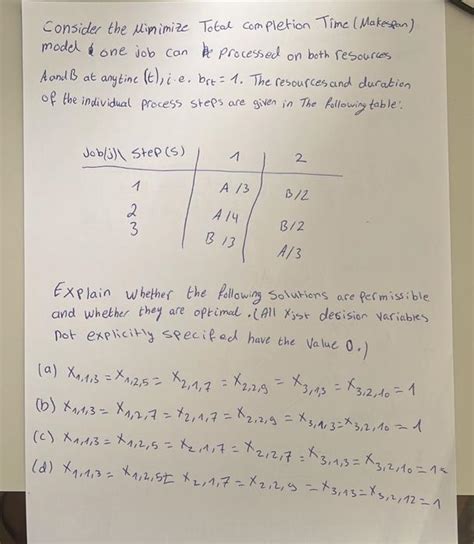 Consider the Minimize Total completion Time (Makespan)
model & one job can be processed on both resources
A and B at anytime (t), i.e. brt = 1. The resources and duration
of the individual process steps are given in The following table:
Job(j)\ Step(s) | 1 | 2
1 A/3 B/2
2 A/4 B/2
3 B/3 A/3
Explain whether the following solutions are permissible
and whether they are optimal. (All Xjst desision variables
not explicitly specifed have the value 0.)
(a) X1,1,3 = X1,2,5 = X2,1,7 = X2,2,9 = X3,1,3 = X3,2,10 = 1
(b) X1,1,3 = X1,2,7 = X2,1,7 = X2,2,9 = X3,1,3 = X3,2,10 = 1
(c) X1,1,3 = X1,2,5 = X2,1,7 = X2,2,7 = X3,1,3 = X3,2,10 = 1
(d) X1,1,3 = X1,2,5 = X2,1,7 = X2,2,9 = X3,13 = X3,2,12 = 1